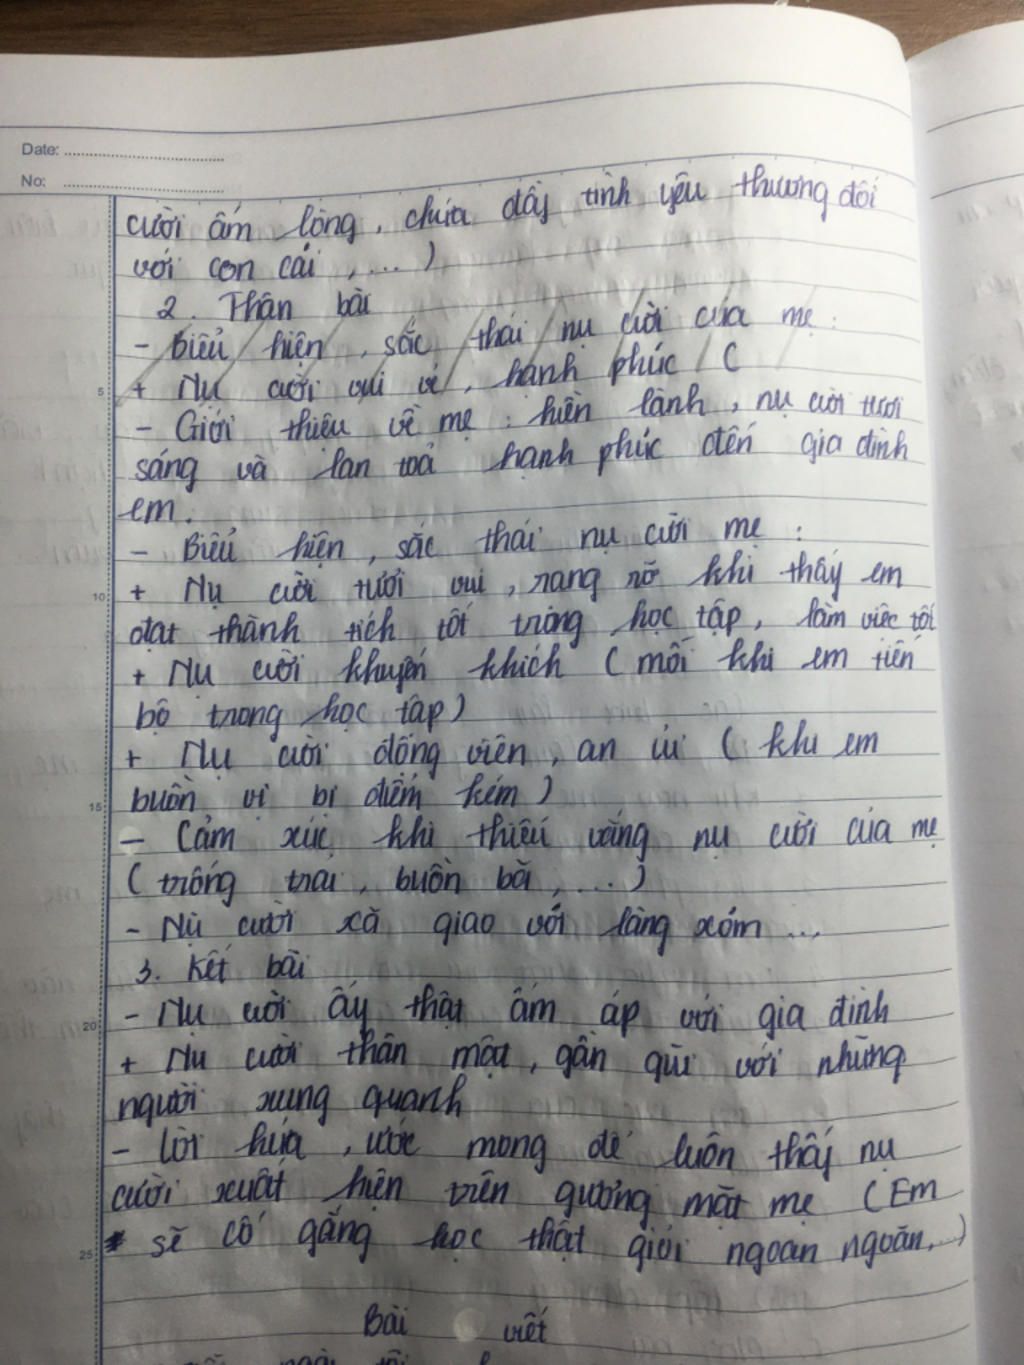 Date:
No:
cười ấm lòng, chứa đầy tình yêu thương đối
với con cái, ...)
2. Thân bài
- Biểu hiện, sắc thái nụ cười của mẹ:
5 + Nụ cười vui vẻ, hạnh phúc (
- Giới thiệu về mẹ: hiền lành, nụ cười tươi
sáng và lan toả hạnh phúc đến gia đình
em.
- Biểu hiện, sắc thái nụ cười mẹ:
10 + Nụ cười tươi vui, rạng rỡ khi thấy em
đạt thành tích tốt trong học tập, làm việc tốt
+ Nụ cười khuyến khích (mỗi khi em tiến
bộ trong học tập)
+ Nụ cười động viên, an ủi (khi em
15 buồn vì bị điểm kém)
- Cảm xúc khi thiếu vắng nụ cười của mẹ
(trống trải, buồn bã, ...)
- Nụ cười xã giao với làng xóm ...
3. Kết bài
20 - Nụ cười ấy thật ấm áp với gia đình
+ Nụ cười thân mật, gần gũi với những
người xung quanh
- Lời hứa, ước mong để luôn thấy nụ
cười xuất hiện trên gương mặt mẹ (Em
25 sẽ cố gắng học thật giỏi ngoan ngoãn,...)
Bài viết